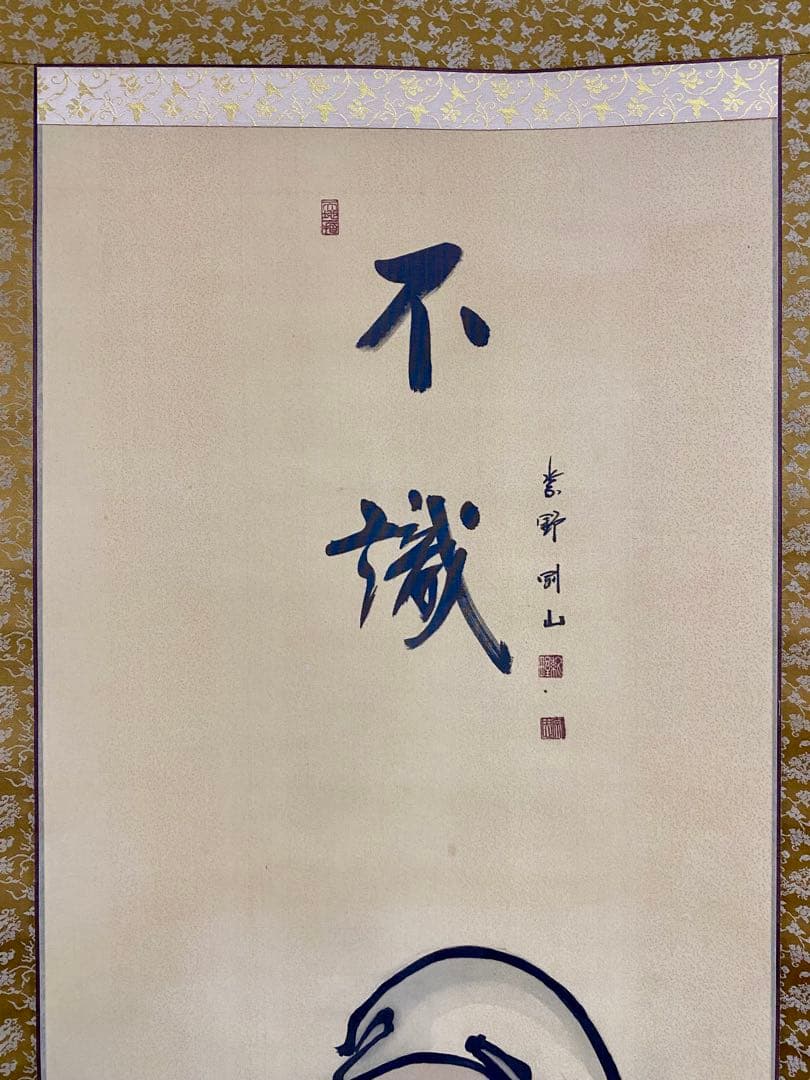 不識
紫野剛山